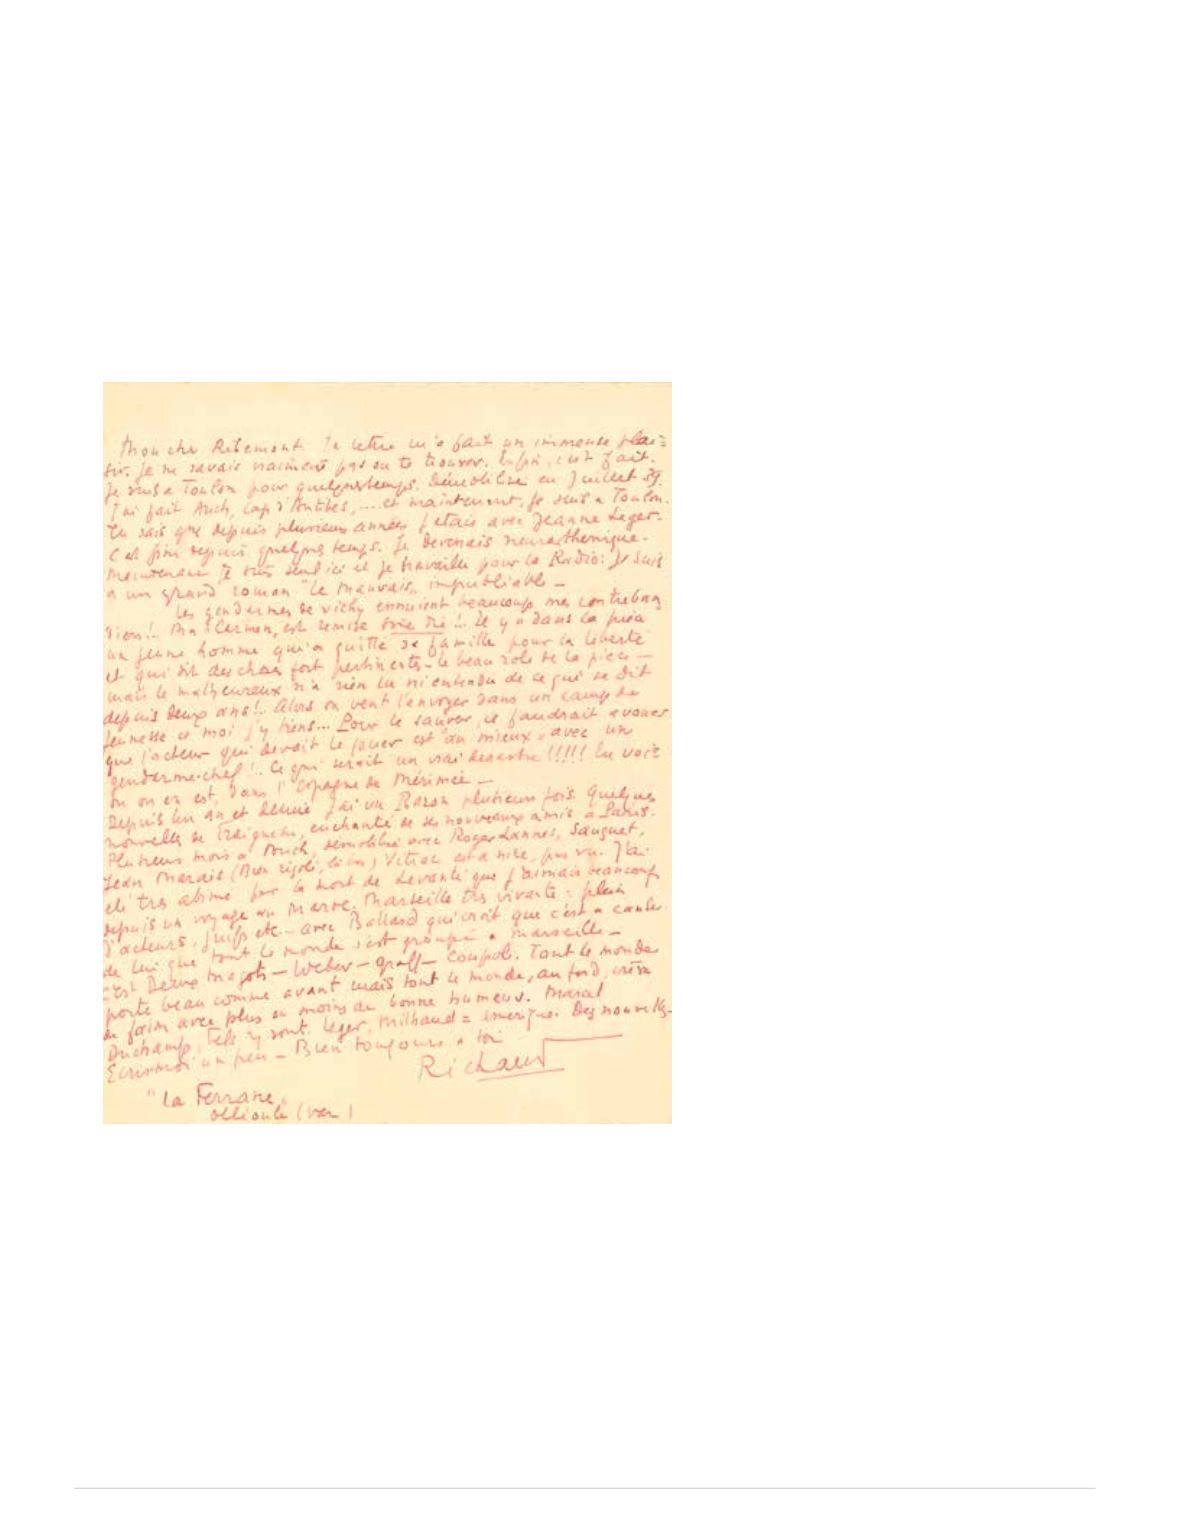 Mon cher Ribemont. Ta lettre m'a fait un immense plai=
sir. Je ne savais vraiment pas où te trouver. Enfin, c'est fait.
Je suis a Toulon pour quelques temps. Démobilisé en Juillet
J'ai fait Auch, Cap d'Antibes, .... et maintenant, je suis a Toulon.
Tu sais que depuis plusieurs années j'étais avec Jeanne Leger.
C'est fini depuis quelques temps. Je devenais neurasthenique.
Maintenant je suis seul ici et je travaille pour la Radio. Je suis
a un grand roman "Le Mauvais" impubliable _
Les gendarmes de Vichy ennuient beaucoup mes contreban
diers!.. Ma "Carmen" est remise sine die!.. Il y a dans la pièce
un jeune homme qui a quitté sa famille pour la liberté
et qui dit des choses fort pertinentes - le beau role de la piece -
mais le malheureux n'a rien lu ni entendu de ce qui se dit
depuis deux ans!.. Alors on veut l'envoyer dans un camp de
Jeunesse et moi j'y tiens... Pour le sauver, il faudrait avouer
que l'acteur qui devait le jouer est "au mieux" avec un
gendarme-chef!.. Ce qui serait un vrai desastre!!!!! Tu vois
ou on en est, dans l'Espagne de Mérimée _
Depuis un an et demi j'ai vu Baron plusieurs fois. Quelques
nouvelles de enchanté de ses nouveaux amis a Paris.
Plusieurs mois a Auch, démobilisé avec Roger Lannes, Sauguet,
Jean Marais (Bien rigolé, ) Vitrac est a Nice, pas vu. J'ai
été tres abimé par la mort de Levanti que j'aimais beaucoup
depuis un voyage au Maroc. Marseille tres vivante: plein
d'acteurs, juifs etc - avec Ballard qui croit que c'est a cause
de lui que tout le monde s'est groupé a Marseille _
C'est Deux Magots - Weber - Graff - Coupole. Tout le monde
porte beau comme avant mais tout le monde, au fond, crève
de faim avec plus ou moins de bonne humeur. Marcel
Duchamp, y sont. Leger, Milhaud = Amerique. Des nouvelles
Ecris-moi un peu - Bien toujours a toi
Richaud
"La Ferrane"
Ollioule (Var)